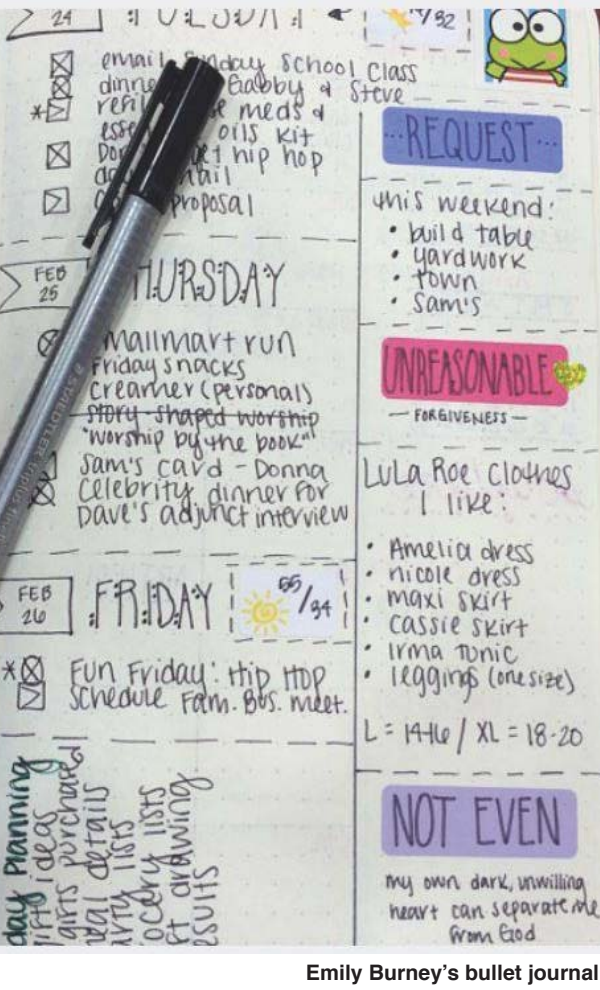 24
TUESDAY
/32
email Sunday School Class
Gabby & Steve
meds &
oils kit
hip hop
proposal
FEB
25
THURSDAY
Wallmart run
Friday snacks
creamer (personal)
story-shaped worship
"worship by the book"
Sam's card - Donna
celebrity dinner for
Dave's adjunct interview
STAEDTLER
FEB
26
FRIDAY
55/34
* Fun Friday: Hip Hop
schedule Fam. Bus. meet.
day planning
ideas
gifts purchased
details
lists
lists
drawing
REQUEST
this weekend:
• build table
• yardwork
• town
• Sam's
UNREASONABLE
— FORGIVENESS —
LuLa Roe Clothes
I like:
• Amelia dress
• nicole dress
• maxi skirt
• cassie skirt
• Irma Tunic
• leggings (one size)
L = 14-16 / XL = 18-20
NOT EVEN
my own dark, unwilling
heart can separate me
from God
Emily Burney's bullet journal